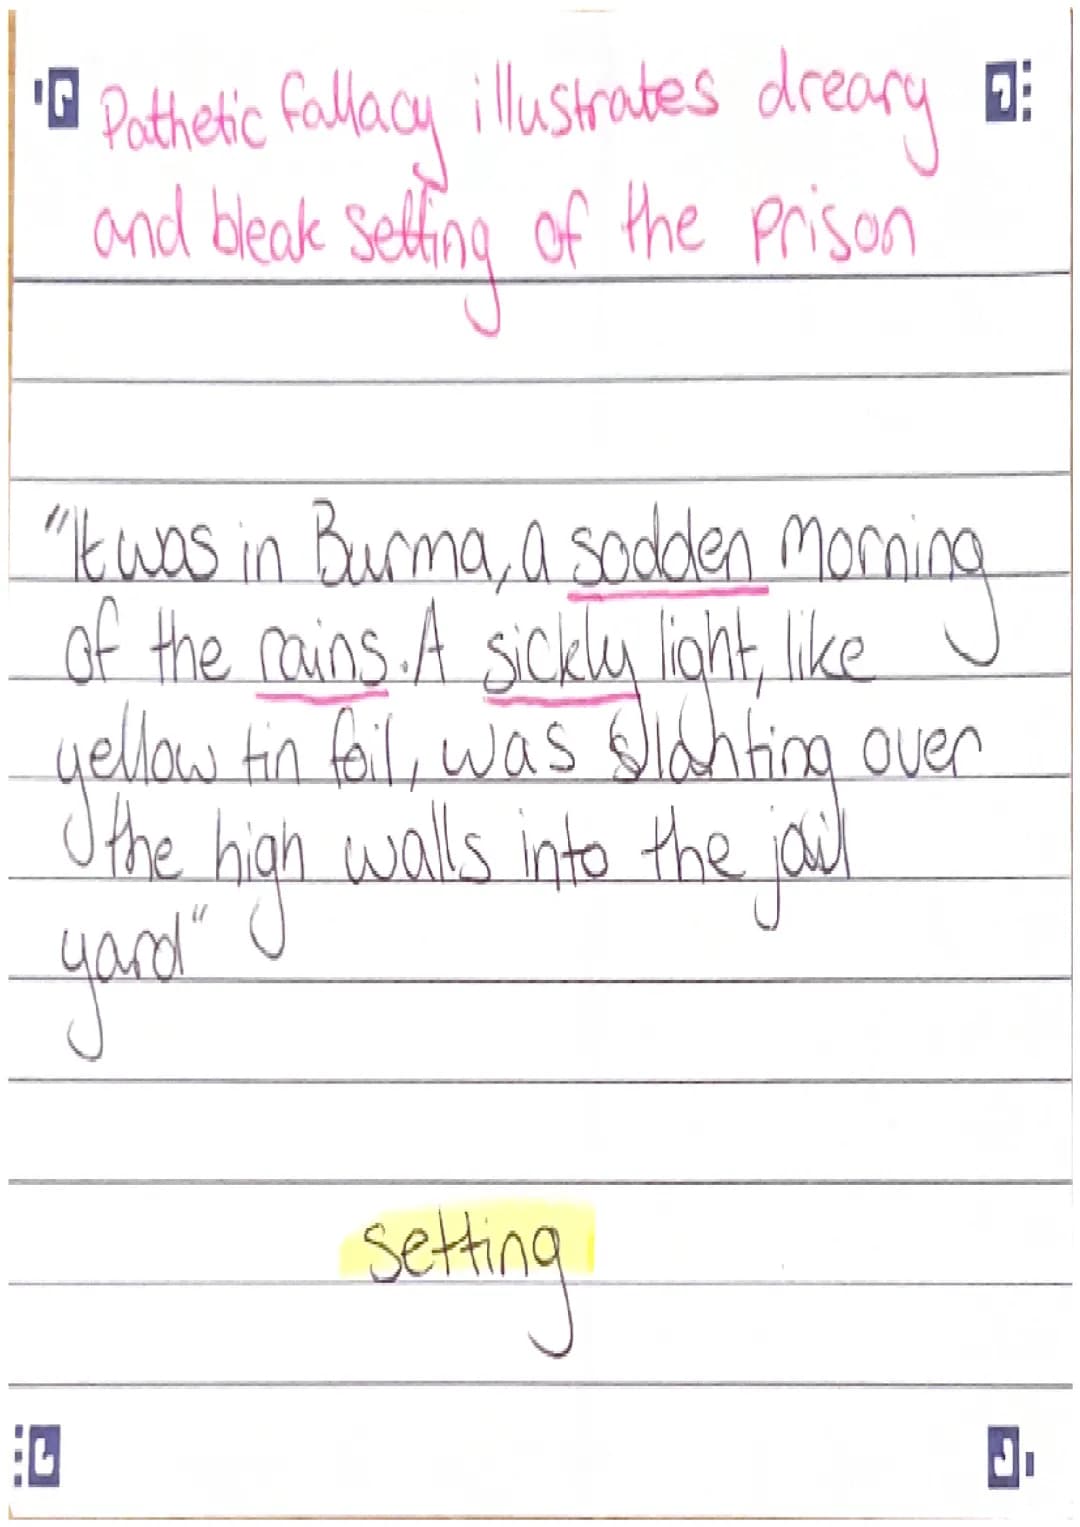 Pathetic fallacy illustrates dreary
and bleak setting of the prison
"It was in Burma, a sodden morning
of the rains. A sickly light, like
yellow tin foil, was slanting over
the high walls into the jail
yard"
setting